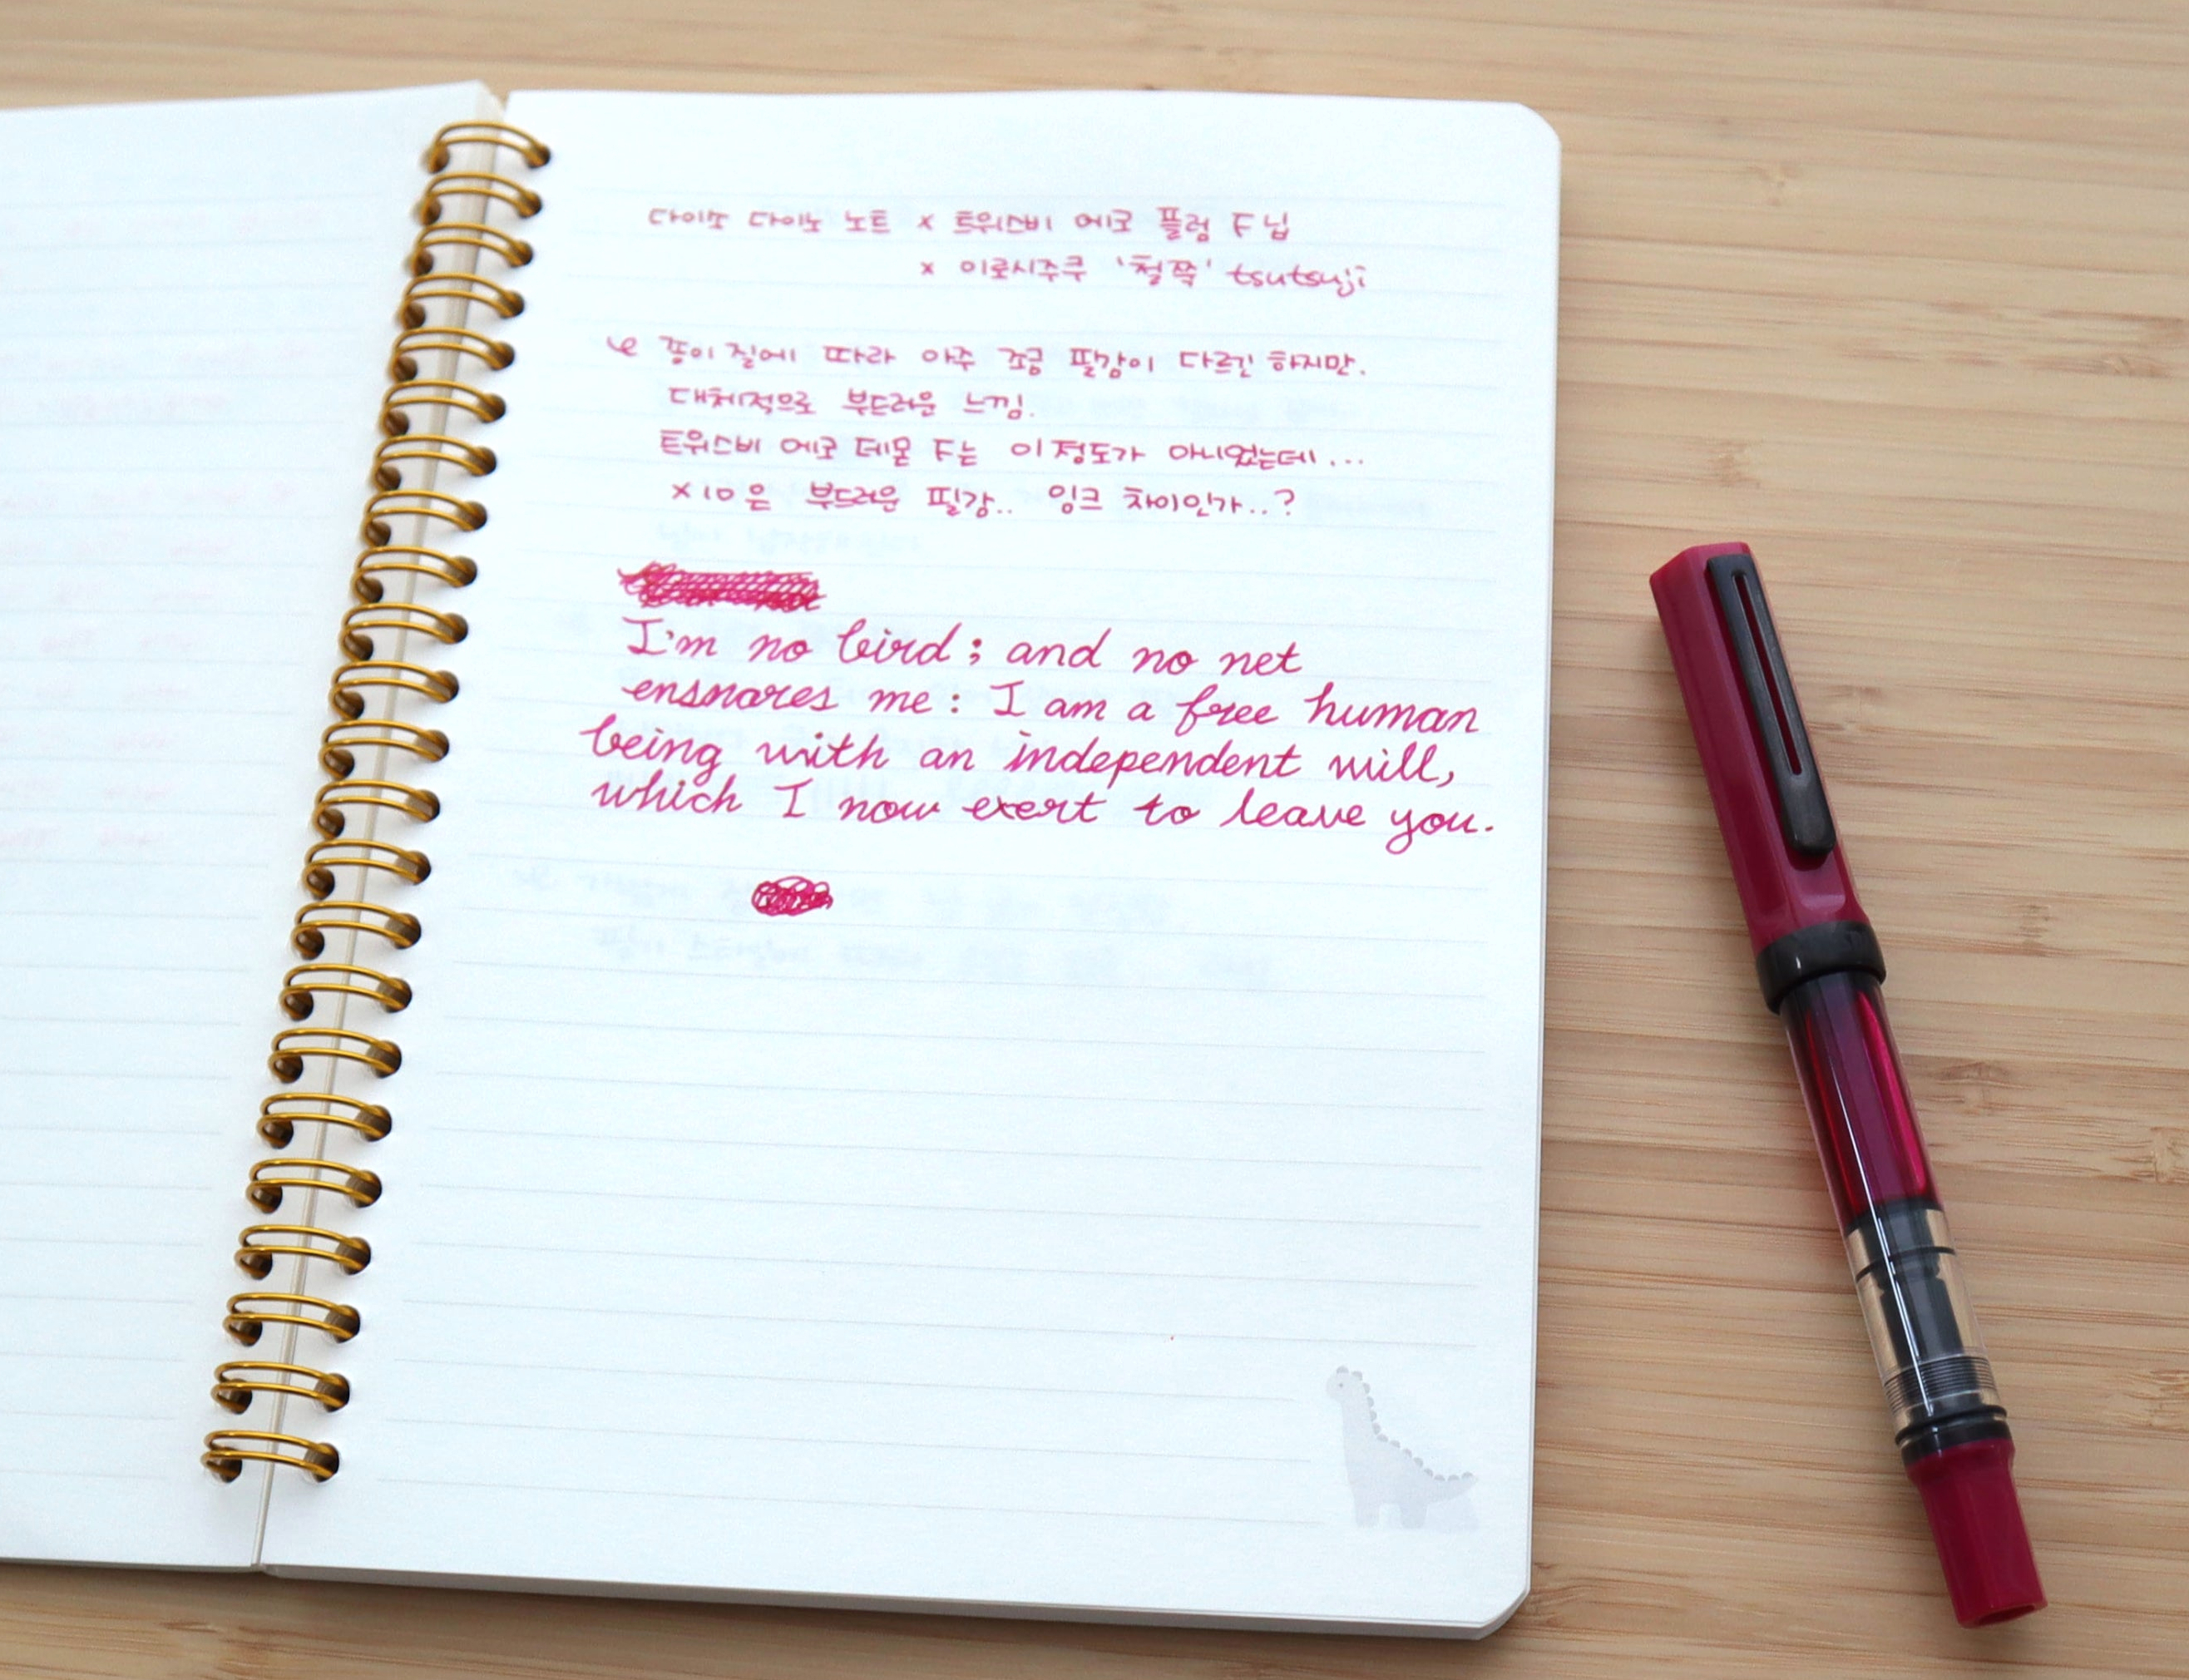 다이소 다이노 노트 x 트위스비 에코 플럼 F닙
x 이로시주쿠 '철쭉' tsutsuji
종이 질에 따라 아주 조금 필감이 다르긴 하지만.
대체적으로 부드러운 느낌.
트위스비 에코 데몬 F는 이 정도가 아니었는데...
×10은 부드러운 필감.. 잉크 차이인가..?
I'm no bird; and no net
ensnares me: I am a free human
being with an independent will,
which I now exert to leave you.